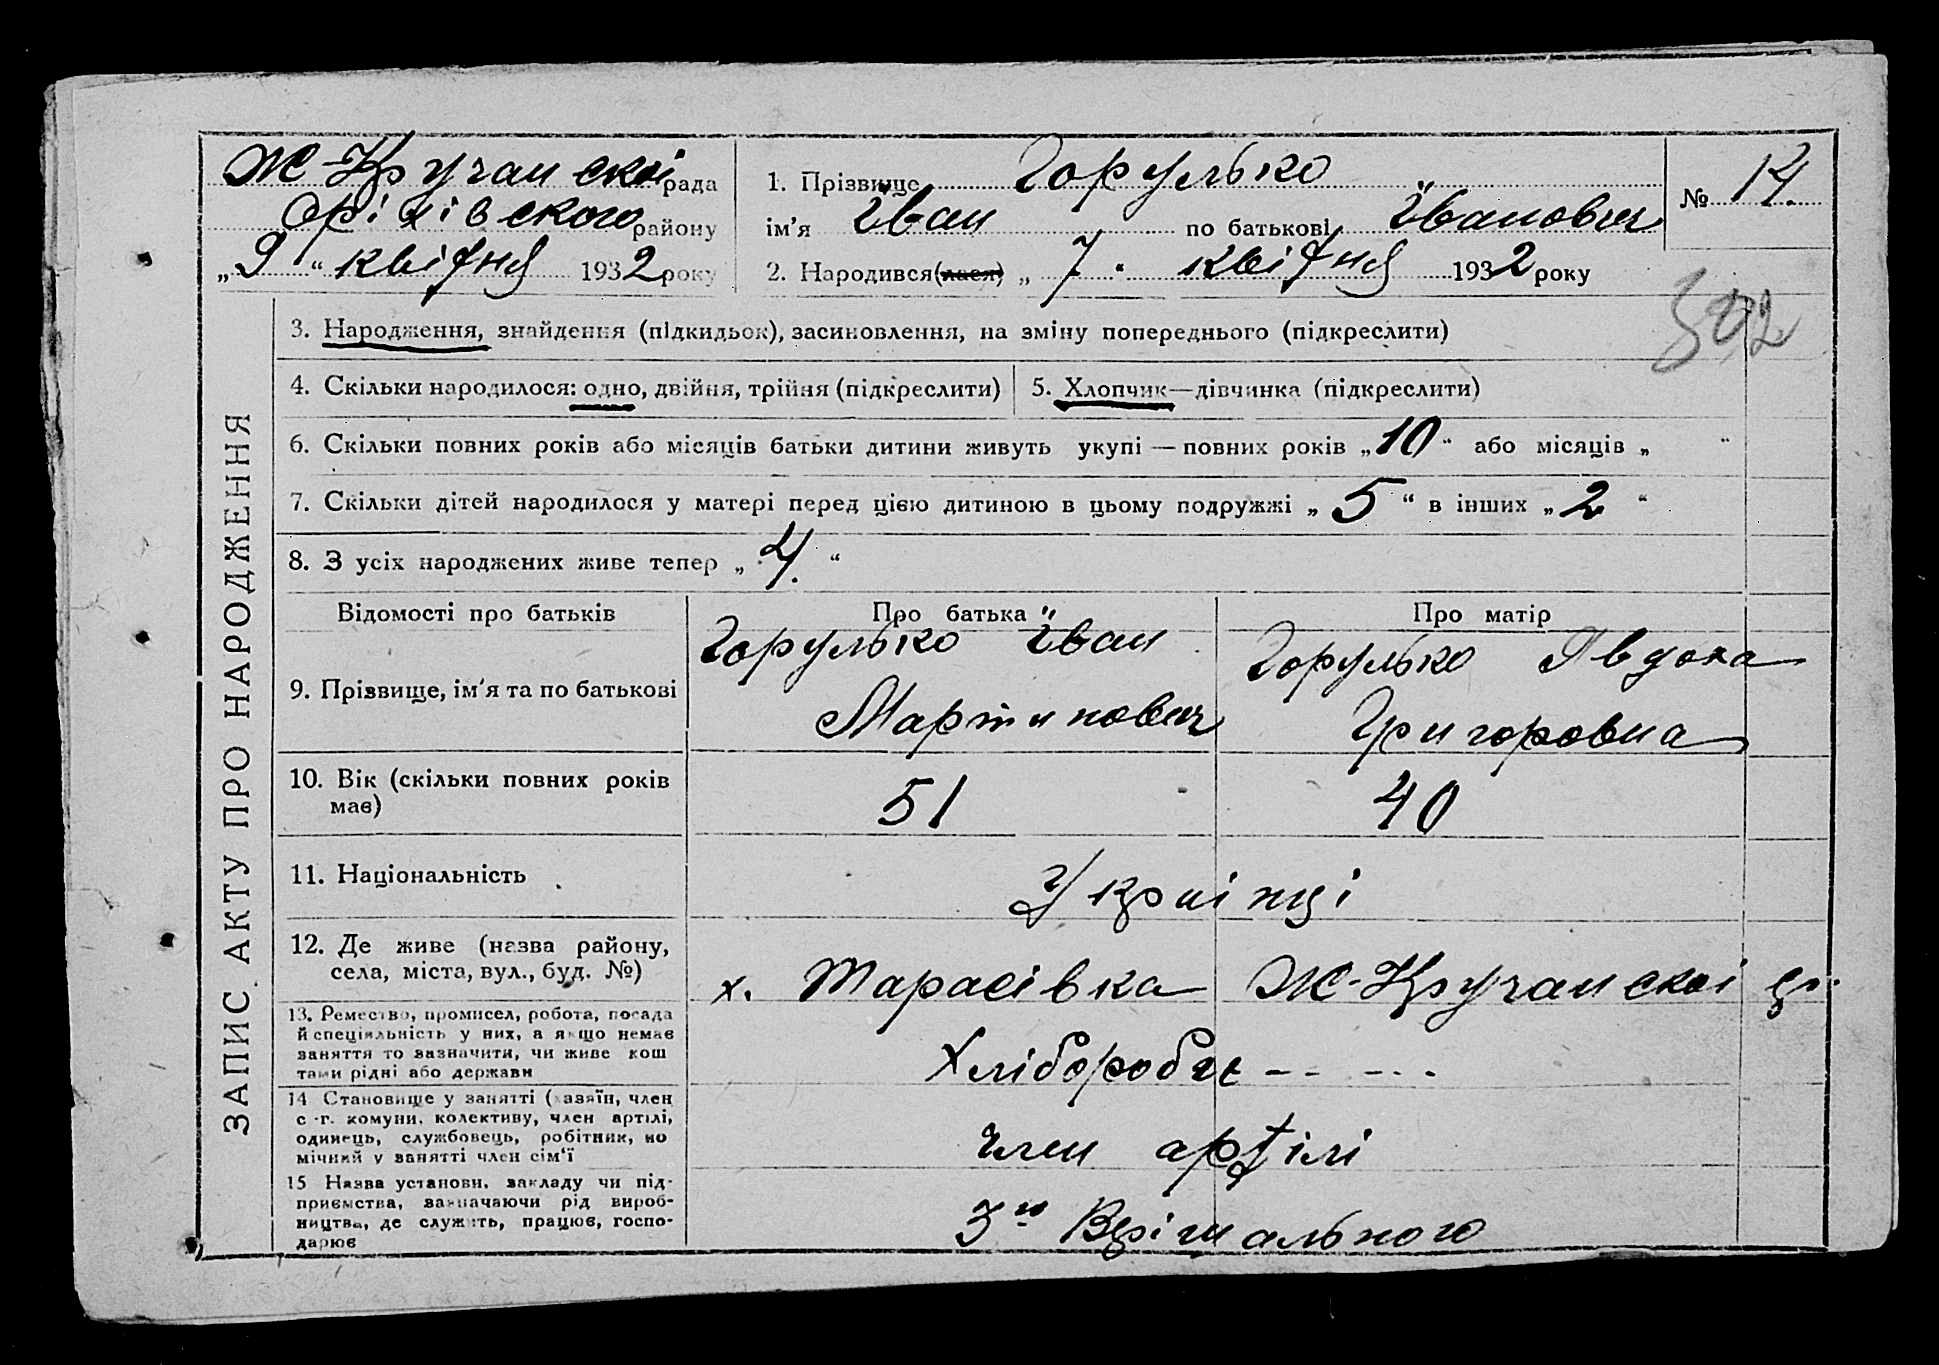 Ж-Кручанскої рада
Оріхівского району
„ 9 “ квітня 1932 року
1. Прізвище Горулько
ім’я Іван по батькові Іванович
2. Народився(лася) „ 7 “ квітня 1932 року
№ 14.
ЗАПИС АКТУ ПРО НАРОДЖЕННЯ
3. Народження, знайдення (підкидьок), засиновлення, на зміну попереднього (підкреслити)
4. Скільки народилося: одно, двійня, трійня (підкреслити)
5. Хлопчик—дівчинка (підкреслити)
6. Скільки повних років або місяців батьки дитини живуть укупі — повних років „ 10 “ або місяців „ “
7. Скільки дітей народилося у матері перед цією дитиною в цьому подружжі „ 5 “ в інших „ 2 “
8. З усіх народжених живе тепер „ 4. “
Відомості про батьків
Про батька
Про матір
9. Прізвище, ім’я та по батькові
Горулько Іван
Мартинович
Горулько Явдоха
Григоровна
10. Вік (скільки повних років
має)
51
40
11. Національність
Украінці
12. Де живе (назва району,
села, міста, вул., буд. №)
х. Тарасівка Ж-Кручанскоі
13. Ремество, промисел, робота, посада
й спеціяльність у них, а якщо немає
заняття то зазначити, чи живе кош
тами рідні або держави
Хлібороб
14 Становище у занятті (хазяїн, член
с.-г. комуни, колективу, член артілі,
одинець, службовець, робітник, по
мічний у занятті член сім‘ї
член артілі
15 Назва установи, закладу чи під-
приємства, зазначаючи рід вироб-
ництва, де служить, працює, госпо-
дарює